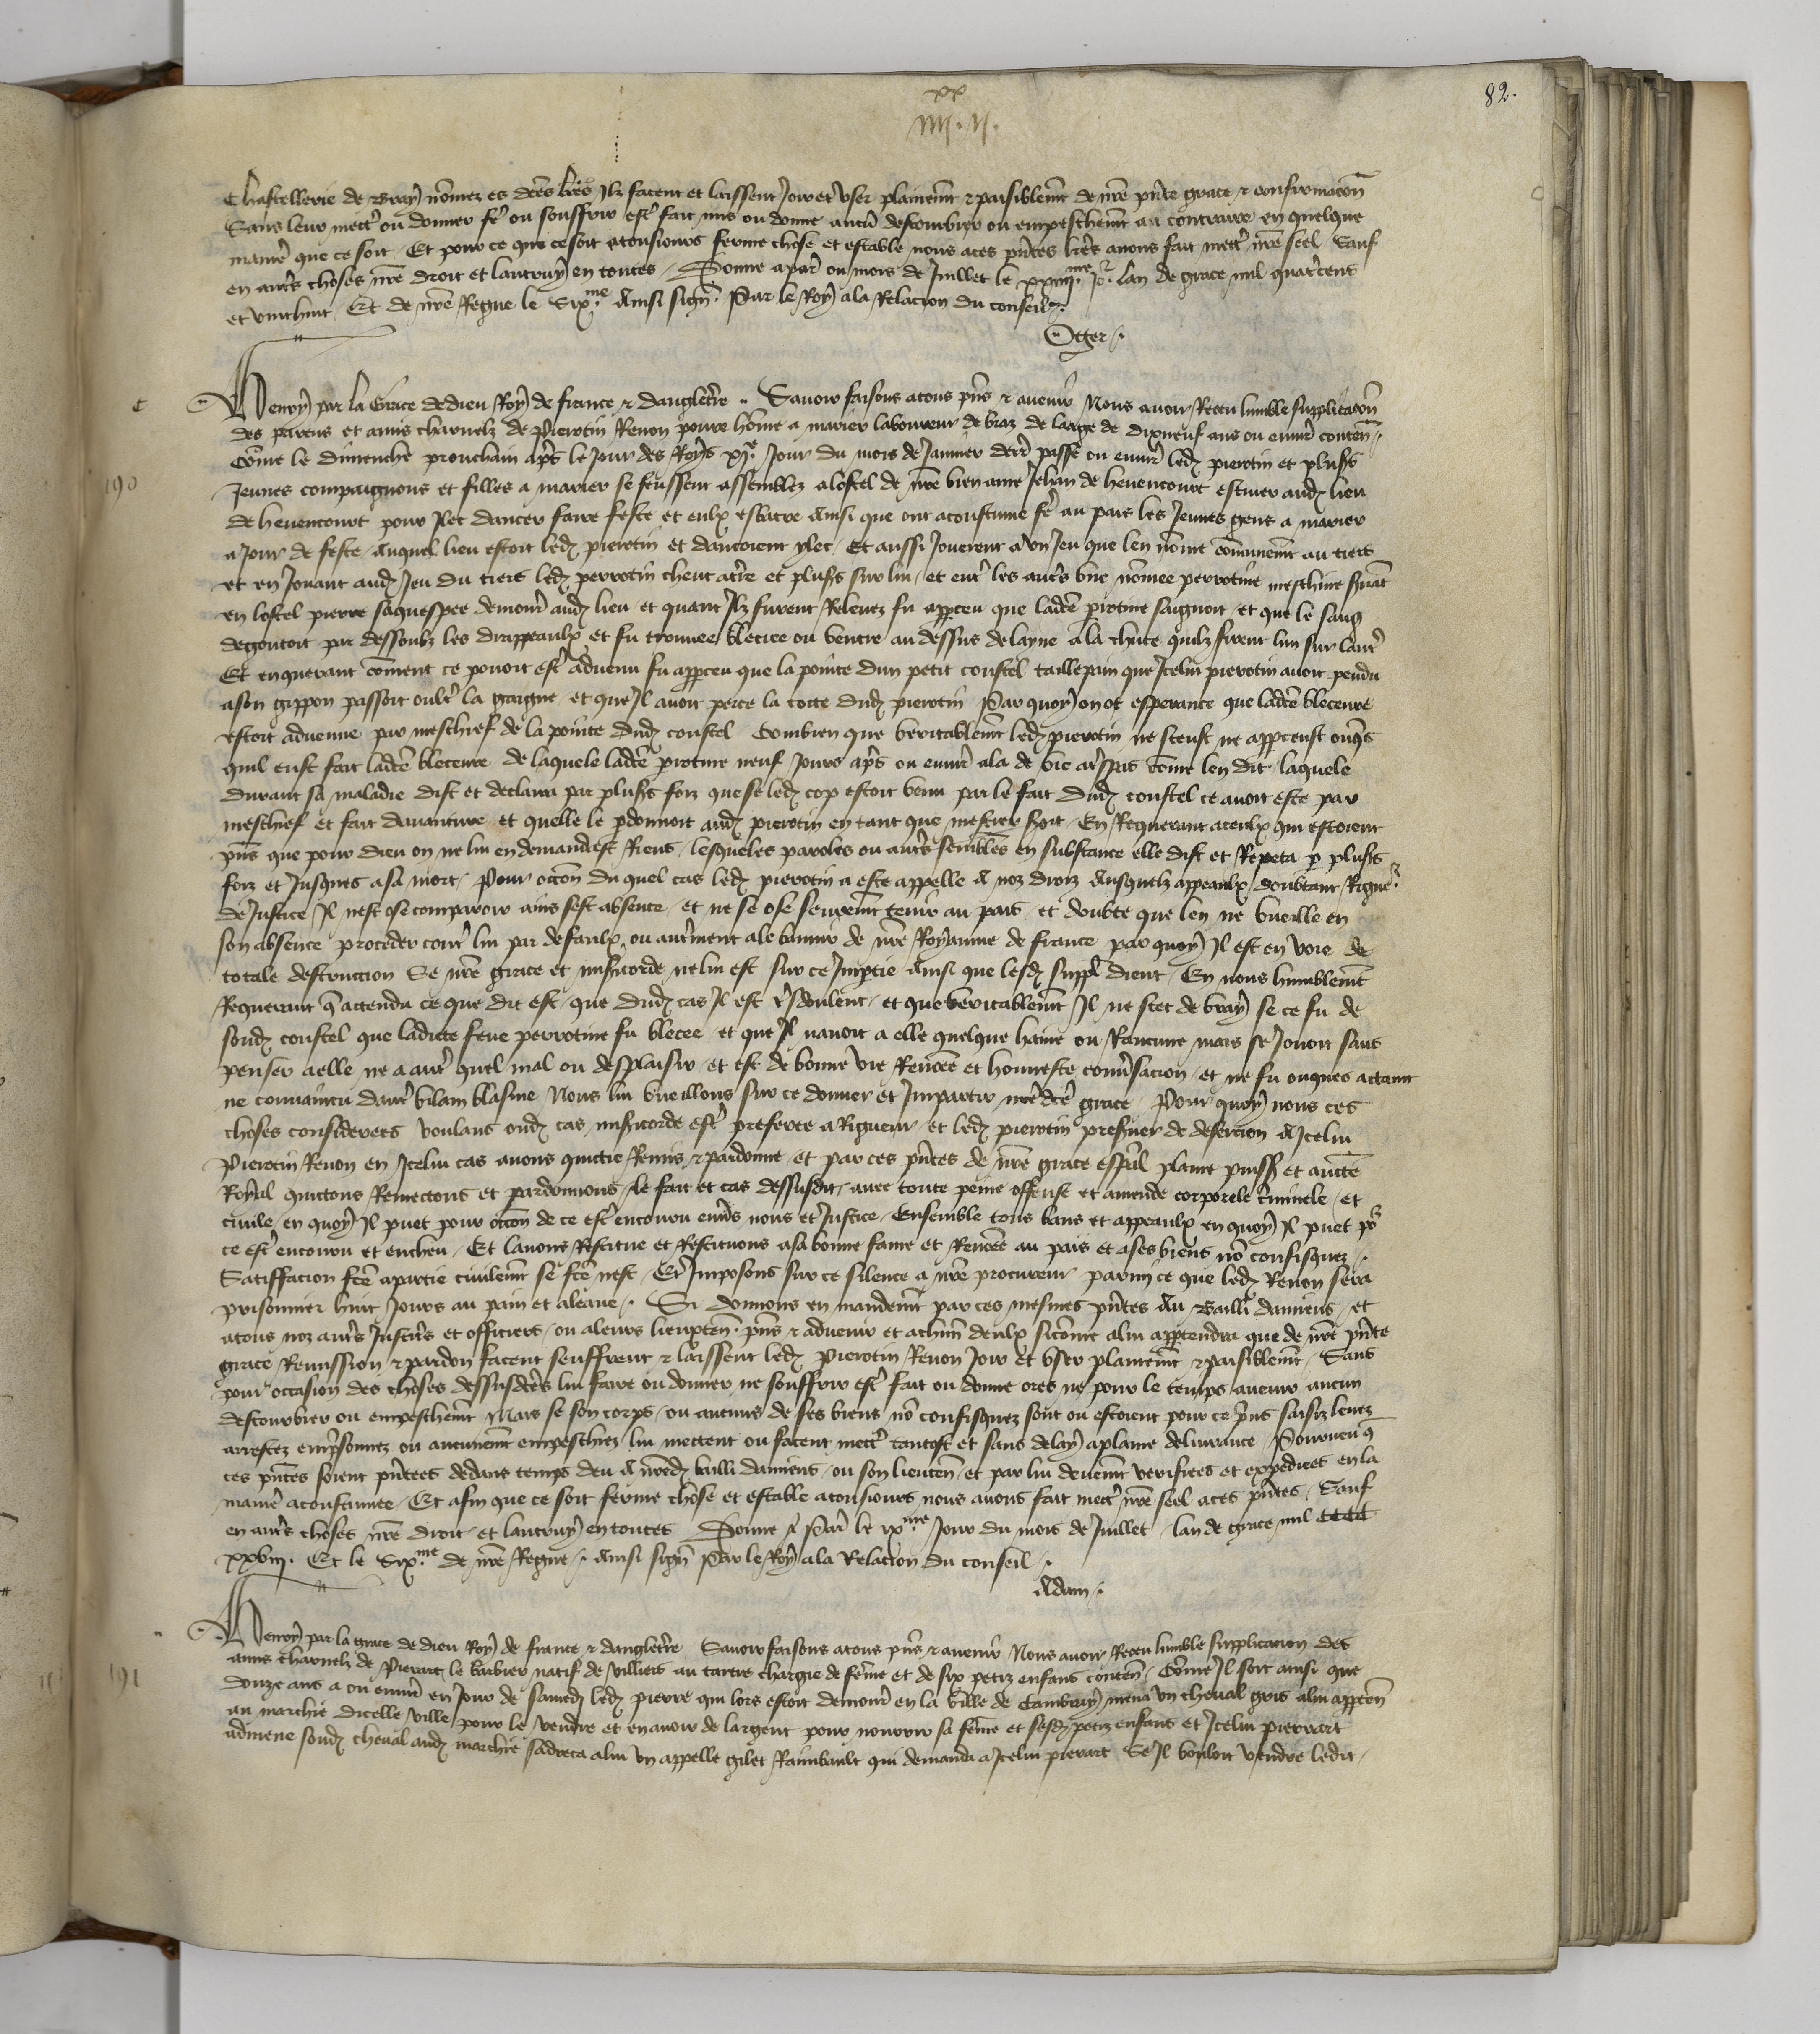 xx
iiii.ii.
82.
Chastellerie de Bray nõmez es dctes lrẽs Ilz facent et laissent Joir et vser plainemt & paisiblemt de nrẽ pñte grace & confirmacõn
Sans leur mettr ou donner fr ou souffrir estr fait mis ou donne aucũ destourbier ou empeschemt au contraire en quelque
manr̃e que ce soit. Et pour ce que ce soit atousiours ferme chose et estable nous aces pñtes lrẽs auons fait mettr nrẽ seel Sauf
en autrs choses nrẽ droit et lautruy en toutes. Donne a par ou mois de Juillet le xxiiii.me Jor. lan de grace mil quatrcens
et vinthuit. Et de nrẽ Regne le Six.me Ainsi sign. Par le Roy ala Relacion du conseil.
Oger.
Henry par la Grace dedieu Roy de france & dangletrre. Sauoir faisons atous pñs & auenir Nous auoir Receu humble supplicacõn
des parens et amis charnelz de Pierotin Renon poure hõme a marier laboureur de braz de laage de dixneuf ans ou enuir̃ conten.
Cõme le dimenche prouchain apr̃s le Jour des Roys xj.e Jour du mois de Januier derr̃ passe ou enuir̃ ledz pierotin et plusrs
190
Jeunes compaignons et filles a marier se feussent assemblez alostel de nrẽ bien ame Jehan de heuencourt escuier audz lieu
de heuencourt pour Ilec dancer faire feste et eulx esbatre Ainsi que ont acoustume fr au pais les Jeunes gens a marier
a Jour de feste. Auquel lieu estoit ledz pierotin et dancoient ylec. Et aussi Jouerent a vn Jeu que len nõme cõmunemt au tiers
et en Jouant audz Jeu du tiers ledz perrotin cheut atr̃re et plusrs sur lui. et entr les autrs vne nõmee perrotine meschine seruãt
en lostel pierre saquespee demourr̃ audz lieu et quant Ilz furent Releuez fu appceu que ladcte pirotine saignoit et que le sang
degoutoit par dessoubz les drappeaulx et fu trouuee blecee ou ventre au dessus de layne ala chute quilz firent lun sur lautr
Et enquerant cõment ce pouoit estr aduenu fu appceu que la pointe dun petit coustel taillepain que Icelui pierotin auoit pendu
a son gippon passoit oultr la gaigne et que Il auoit perce la cotte dudz pierotin Par quoy on ot esperance que ladcte bleceure
estoit aduenue par meschief de la pointe dudz coustel Combien que veritablemt ledz pierotin ne sceust ne appceust onqs
quil eust fait ladcte bleceure de laquele ladcte pirotine neuf Jours apr̃s ou enuir̃ ala de vie atrspas cõme len dit laquele
durant sa maladie dist et declaira par plusrs foiz que se ledz cop estoit venu par le fait dudz coustel ce auoit este par
meschief et fait dauanture et quelle le pdonnoit audz pierotin en tant que mestier soit. En Requerant aceulx qui estoient
pñs que pour dieu on ne lui en demandast Riens. lesqueles paroles ou autrs semblẽs en substance elle dist et Repeta p plusrs
foiz et Jusques asa mort. Pour occõn du quel cas ledz pierotin a este appelle A noz droiz Ausquelz appeaulx doubtant Rigr
de Justice Il nest ose comparoir ains sest absente. et ne se ose seuremt tenir au pais. et doubte que len ne vueille en
son absence proceder contr lui par defaulx ou autrment ale bannir de nrẽ Royaume de france par quoy Il est en voie de
totale destruccion Se nrẽ grace et misricorde nelui est sur ce Impetie Ainsi que lesdz suppl dient. En nous humblemt
Requerant q attendu ce que dit est. que dudz cas Il est trsdoulent. et que veritablemt Il ne scet de vray se ce fu de
sondz coustel que ladicte feue perrotine fu blecee et que Il nauoit a elle quelque haine ou Rancune mais se Jouoit sans
penser aelle ne a autr quel mal ou desplaisir. et est de bonne vie Renõee et honneste conuersacion. et ne fu onques attaint
ne conuaincu dautr vilain blasme Nous lui vueillons sur ce donner et Impartir nrẽ dcte grace. Pour quoy nous ces
choses considerees voulans oudz cas misricorde estr preferee a Rigueur. et ledz pierotin preseruer de desercion A Icelui
Pierotin Renon en Icelui cas auons quictie Remis & pardonne. et par ces pñtes de nrẽ grace espãl plaine puiss et auctẽ
Royal quictons Remectons et pardonnons. le fait et cas dessusdit. auec toute peine offense et amende corporele crminele. et
ciuile en quoy Il puet pour occõn de ce estr encouru enurs nous et Justice. Ensemble tous bans et appeaulx en quoy Il puet por
ce estr encouru et encheu. Et lauons Restitue et Restituons asa bonne fame et Renõee au pais et ases biens nõ confisquez.
Satiffacion fcte apartie ciuilemt se fcte nest. Et Imposons sur ce silence a nrẽ procureur parmi ce que ledz Renon sera
prisonnier huit Jours au pain et aleaue. Si donnons en mandemt par ces mesmes pñtes Au Bailli damiens. et
atous noz autrs Justicrs et officiers. ou aleurs lieuxten. pñs & aduenir et achũn deulx sicõme alui apptendra que de nrẽ pñte
grace Remission & pardon facent seuffrent & laissent ledz Pierotin Renon Joir et vser plainemt & paisiblemt. Sans
pour occasion des choses dessusdctes lui faire ou donner ne souffrir estr fait ou donne ores ne pour le temps auenir aucun
destourbier ou empeschemt Mais se son corps. ou aucuns de ses biens nõ confisquez sont ou estoient pour ce prins saisiz leuez
arrestez emprisonnez ou aucunemt empeschiez lui mettent ou facent mettr tantost et sans delay aplaine deliurance Pourueu q
ces pñtes soient pñtees dedans temps deu A nrẽdz bailli damiens. ou son lieuten. et par lui deuemt verifiees et expediees en la
manr̃e acoustumee. Et afin que ce soit ferme chose et estable atousiours nous auons fait mettr nrẽ seel aces pñtes. Sauf
en autrs choses nrẽ droit. et lautruy en toutes Donne a Par le ix.me Jour du mois de Juillet. lan de grace mil cccc
xxviij. Et le Six.me de nrẽ Regne. Ainsi sign Par le Roy ala Relacion du conseil.
Adam.
Henry par la grace de dieu Roy de france & dangletrre Sauoir faisons atous pñs & auenir Nous auoir Receu humble supplicacion des
191
amis charnelz de Pierart le barbier natif de villiers au tartre chargie de fẽme et de six petiz enfans conten. Cõme Il soit ainsi que
douze ans a ou enuir̃ en Jour de samedi ledz pierre qui lors estoit demourr̃ en la ville de Cambray mena vn cheual gris alui apptenãt
au marchie dicelle ville pour le vendre et en auoir de largent pour nourrir sa fẽme et sesdz petiz enfans et Icelui pierrart
admene sondz cheual audz marchie sadreca alui vn appelle gilet Raimbault qui demanda a Icelui pierart Se Il vouloit vendre ledit